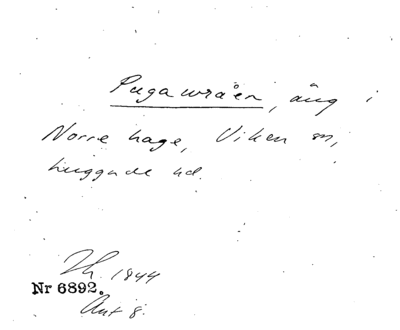 Pugawraen, äng i
Norre hage, Viken sn,
Luggude hd.
Th. 1944
Nr 6892.
Ant 8.